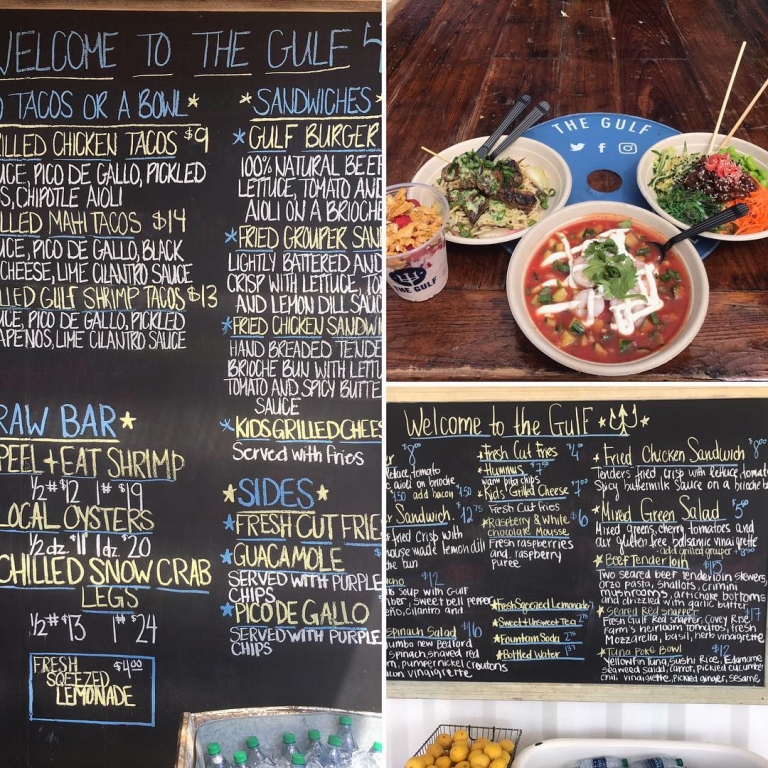 WELCOME TO THE GULF
TACOS OR A BOWL
CHICKEN TACOS $9
PICO DE GALLO, PICKLED
CHIPOTLE AIOLI
MAHI TACOS $14
PICO DE GALLO, BLACK
CHEESE, LIME CILANTRO SAUCE
GULF SHRIMP TACOS $13
PICO DE GALLO, PICKLED
LIME CILANTRO SAUCE
RAW BAR
PEEL + EAT SHRIMP
½# $12 1# $19
LOCAL OYSTERS
½ dz. $11 1 dz. $20
CHILLED SNOW CRAB
LEGS
½# $13 1# $24
FRESH $4.00
SQEEZED
LEMONADE
SANDWICHES
GULF BURGER
100% NATURAL BEEF
LETTUCE, TOMATO AND
AIOLI ON A BRIOCHE
FRIED GROUPER SAN
LIGHTLY BATTERED AND
CRISP WITH LETTUCE, TO
AND LEMON DILL SAUC
FRIED CHICKEN SANDWI
HAND BREADED TENDE
BRIOCHE BUN WITH LETTU
TOMATO AND SPICY BUTTE
SAUCE
KIDS GRILLED CHEES
Served with fries
SIDES
FRESH CUT FRIE
GUACAMOLE
SERVED WITH PURPLE
CHIPS
PICO DE GALLO
SERVED WITH PURPLE
CHIPS
THE GULF
THE GULF
Welcome to the Gulf
lettuce, tomato
aioli on brioche
add bacon 1.50
Sandwich 12.75
fried Crisp with
house made lemon dill
bun
$12
Soup with Gulf
sweet bell pepper
cilantro and
Spinach Salad $16
Jumbo new Bedford
spinach, shaved red
pumpernickel croutons
vinaigrette
Fresh Cut Fries $4
Humnus $7
warm pita chips
Kids' Grilled Cheese $7
Fresh Cut Fries
Raspberry & White $6
chocolate Mousse
Fresh raspberries
and raspberry
puree
Fresh Sqeezed Lemonade
Sweet + Unsweet Tea
Fountain Soda
Bottled Water
Fried Chicken Sandwich $8
Tenders fried crisp with lettuce, tomato
Spicy buttermilk Sauce on a brioche b
Mixed Green Salad $5
Mixed greens, cherry tomatoes and
our gluten free balsamic vinaigrette
add grilled grouper
Beef Tenderloin $15
Two seared beef tenderloin skewers,
orzo pasta, shallots, crimini
mushrooms, artichoke bottoms
and drizzled with garlic butter
Seared Red Snapper $17
Fresh Gulf Red snapper, Covey Rise
Farm's heirloom tomatoes, fresh
Mozzarella, basil, herb vinaigrette
Tuna Poke Bowl $12
Yellowfin tuna, Sushi Rice, Edamame
seaweed salad, carrot, pickled cucumber
chili vinaigrette, pickled ginger, sesame